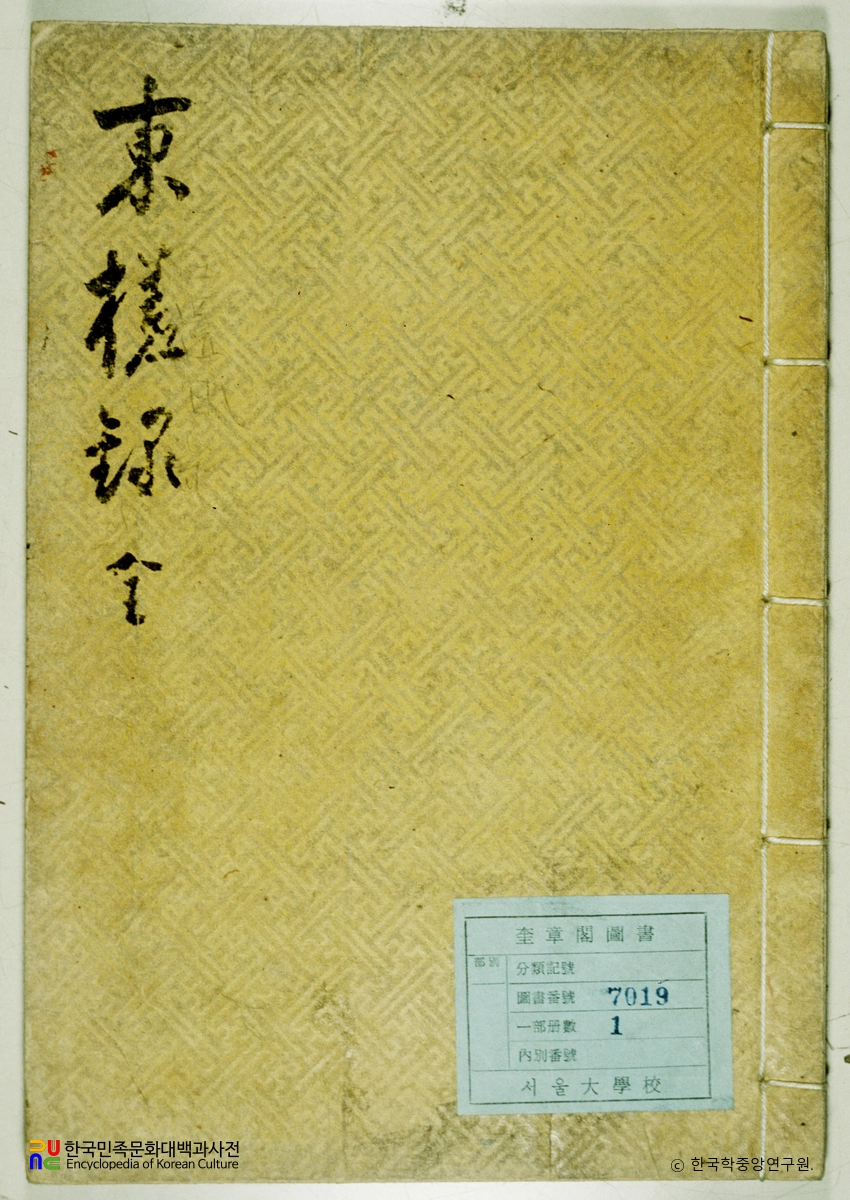 東槎錄 全
奎章閣圖書
部別
分類記號
圖書番號 7019
一部册數 1
內別番號
서울大學校
한국민족문화대백과사전
Encyclopedia of Korean Culture
ⓒ 한국학중앙연구원.